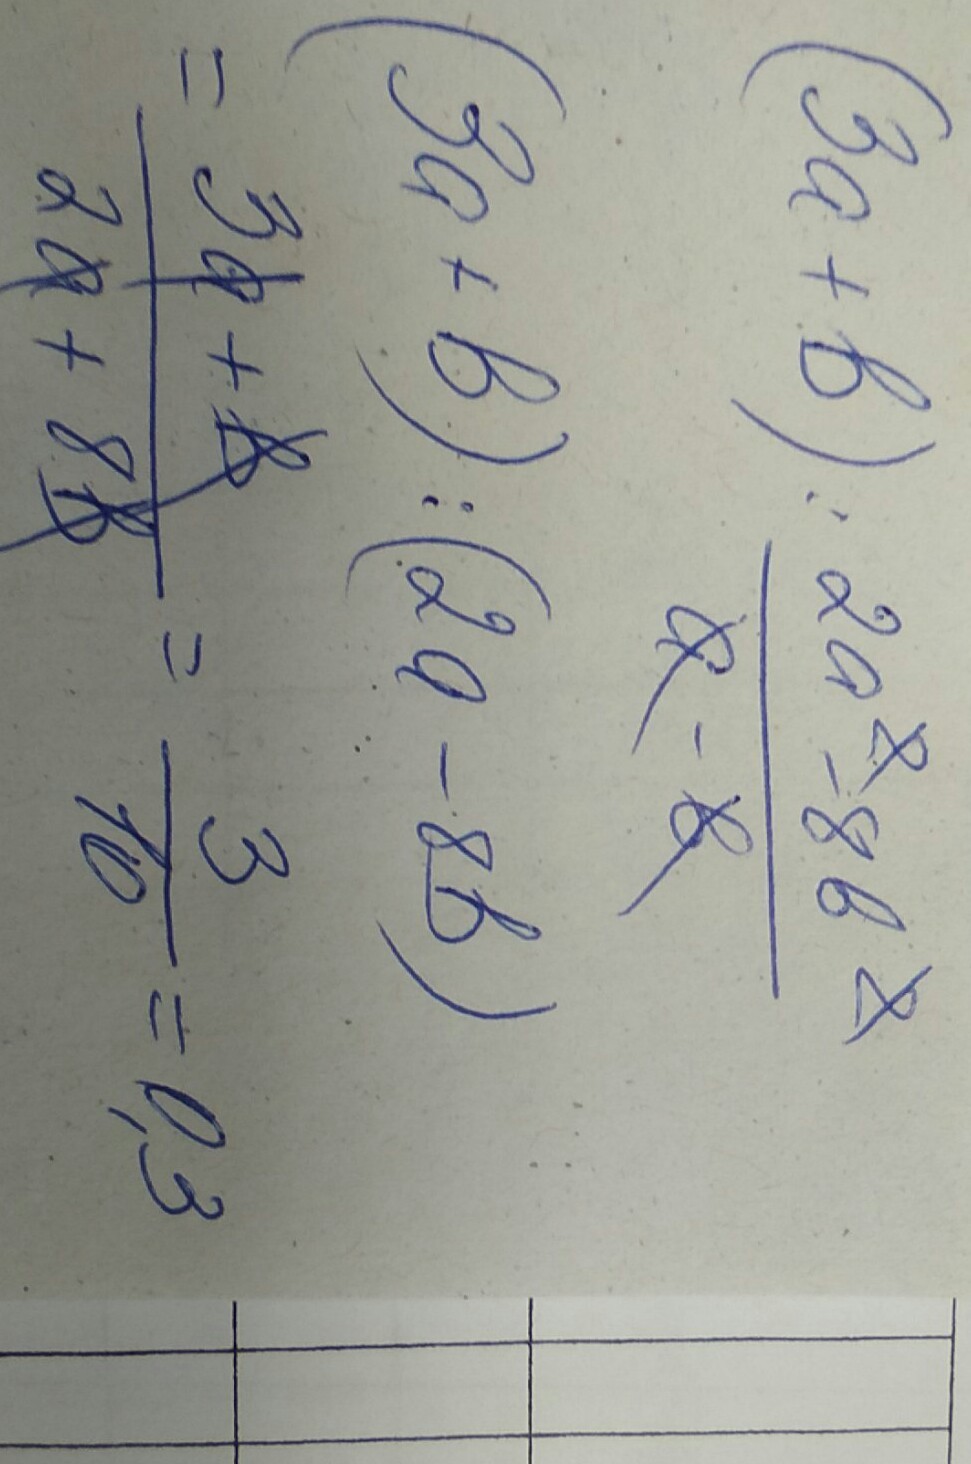 (3a + b) : 2a² - 8b²
a - b
(3a + b) : (2a - 8b)
= 3a + b
2a + 8b
= 3
10
= 0,3